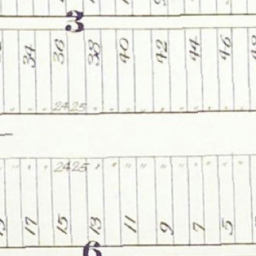 3
34 36 38 40 42 44 46
2425
2425
17 15 13 11 9 7 5
6